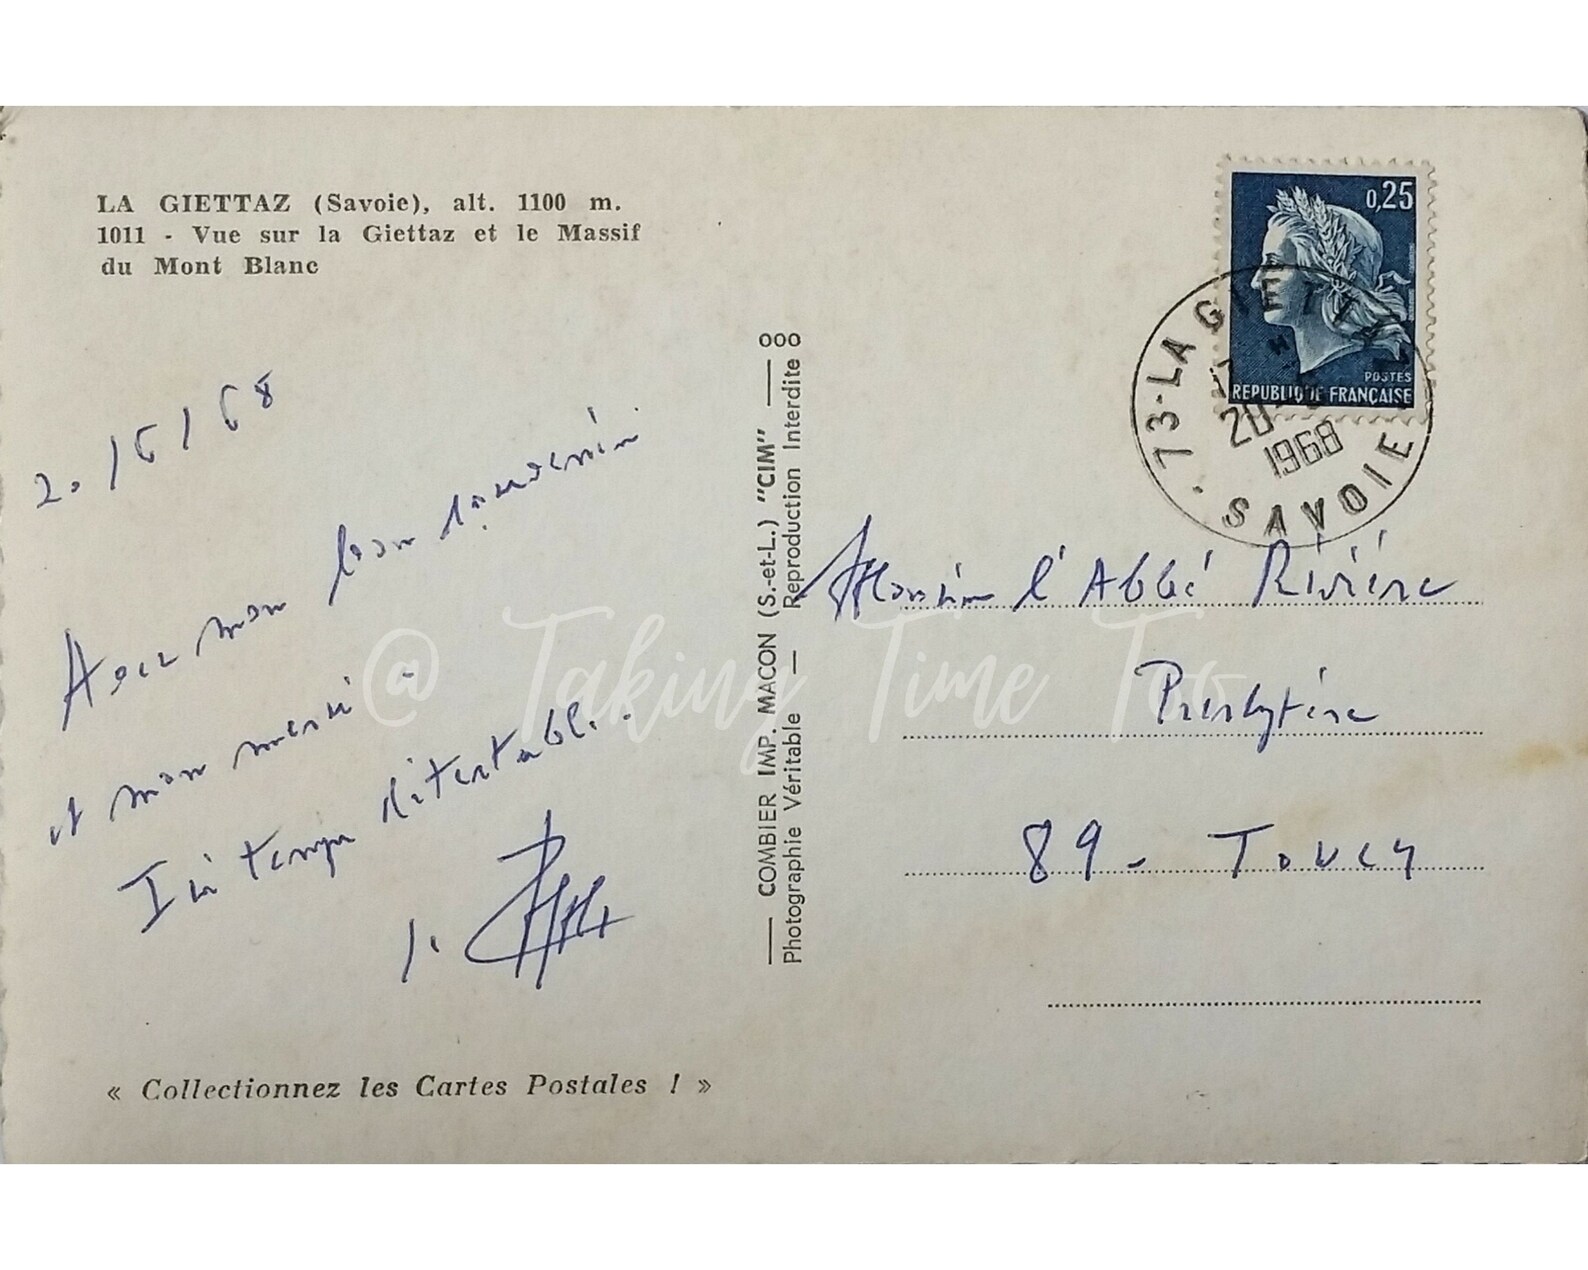 LA GIETTAZ (Savoie), alt. 1100 m.
1011 - Vue sur la Giettaz et le Massif
du Mont Blanc
0,25
POSTES
REPUBLIQUE FRANÇAISE
73-LA GIETTAZ
20
1968
SAVOIE
Avec mon bon souvenir
et mon merci.
Ici temps détestable.
COMBIER IMP. MACON (S.-et-L.) "CIM" ooo
Photographie Véritable — Reproduction Interdite
Monsieur l'Abbé Rivière
Presbytère
89 - Toucy
@ Taking Time Too
« Collectionnez les Cartes Postales ! »